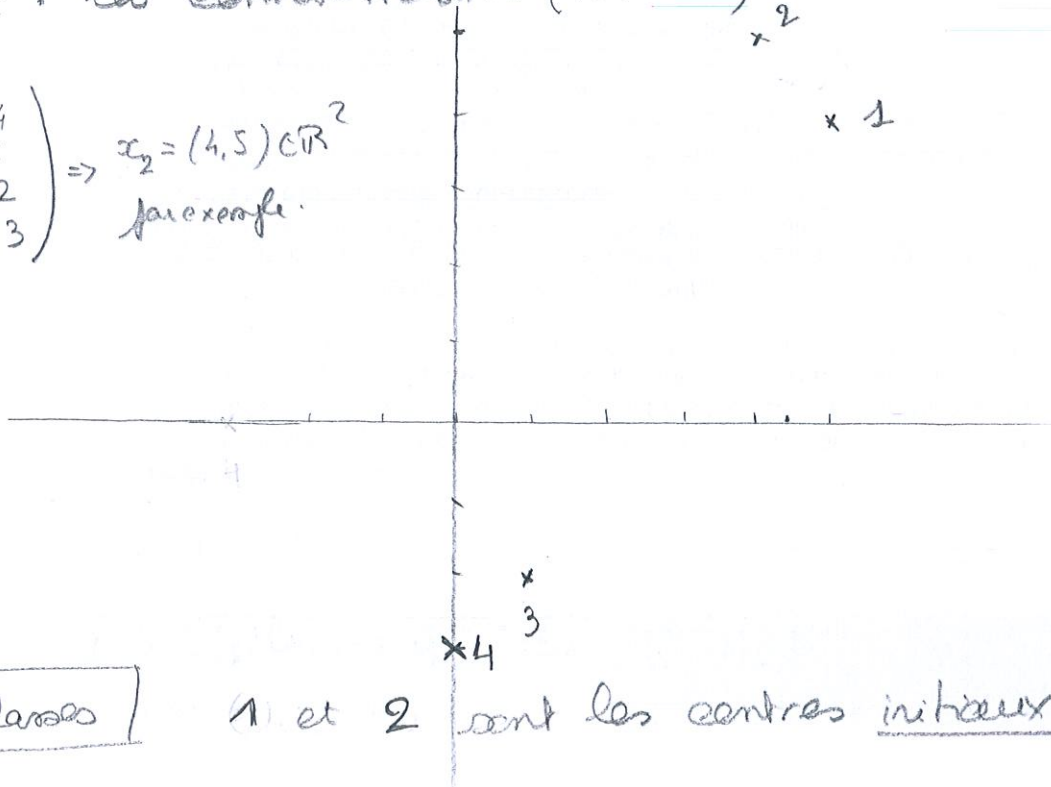 2
1
4
2
3
=> x₂ = (4,5) ∈ ℝ²
par exemple.
3
4
lasses
1 et 2 sont les centres initiaux